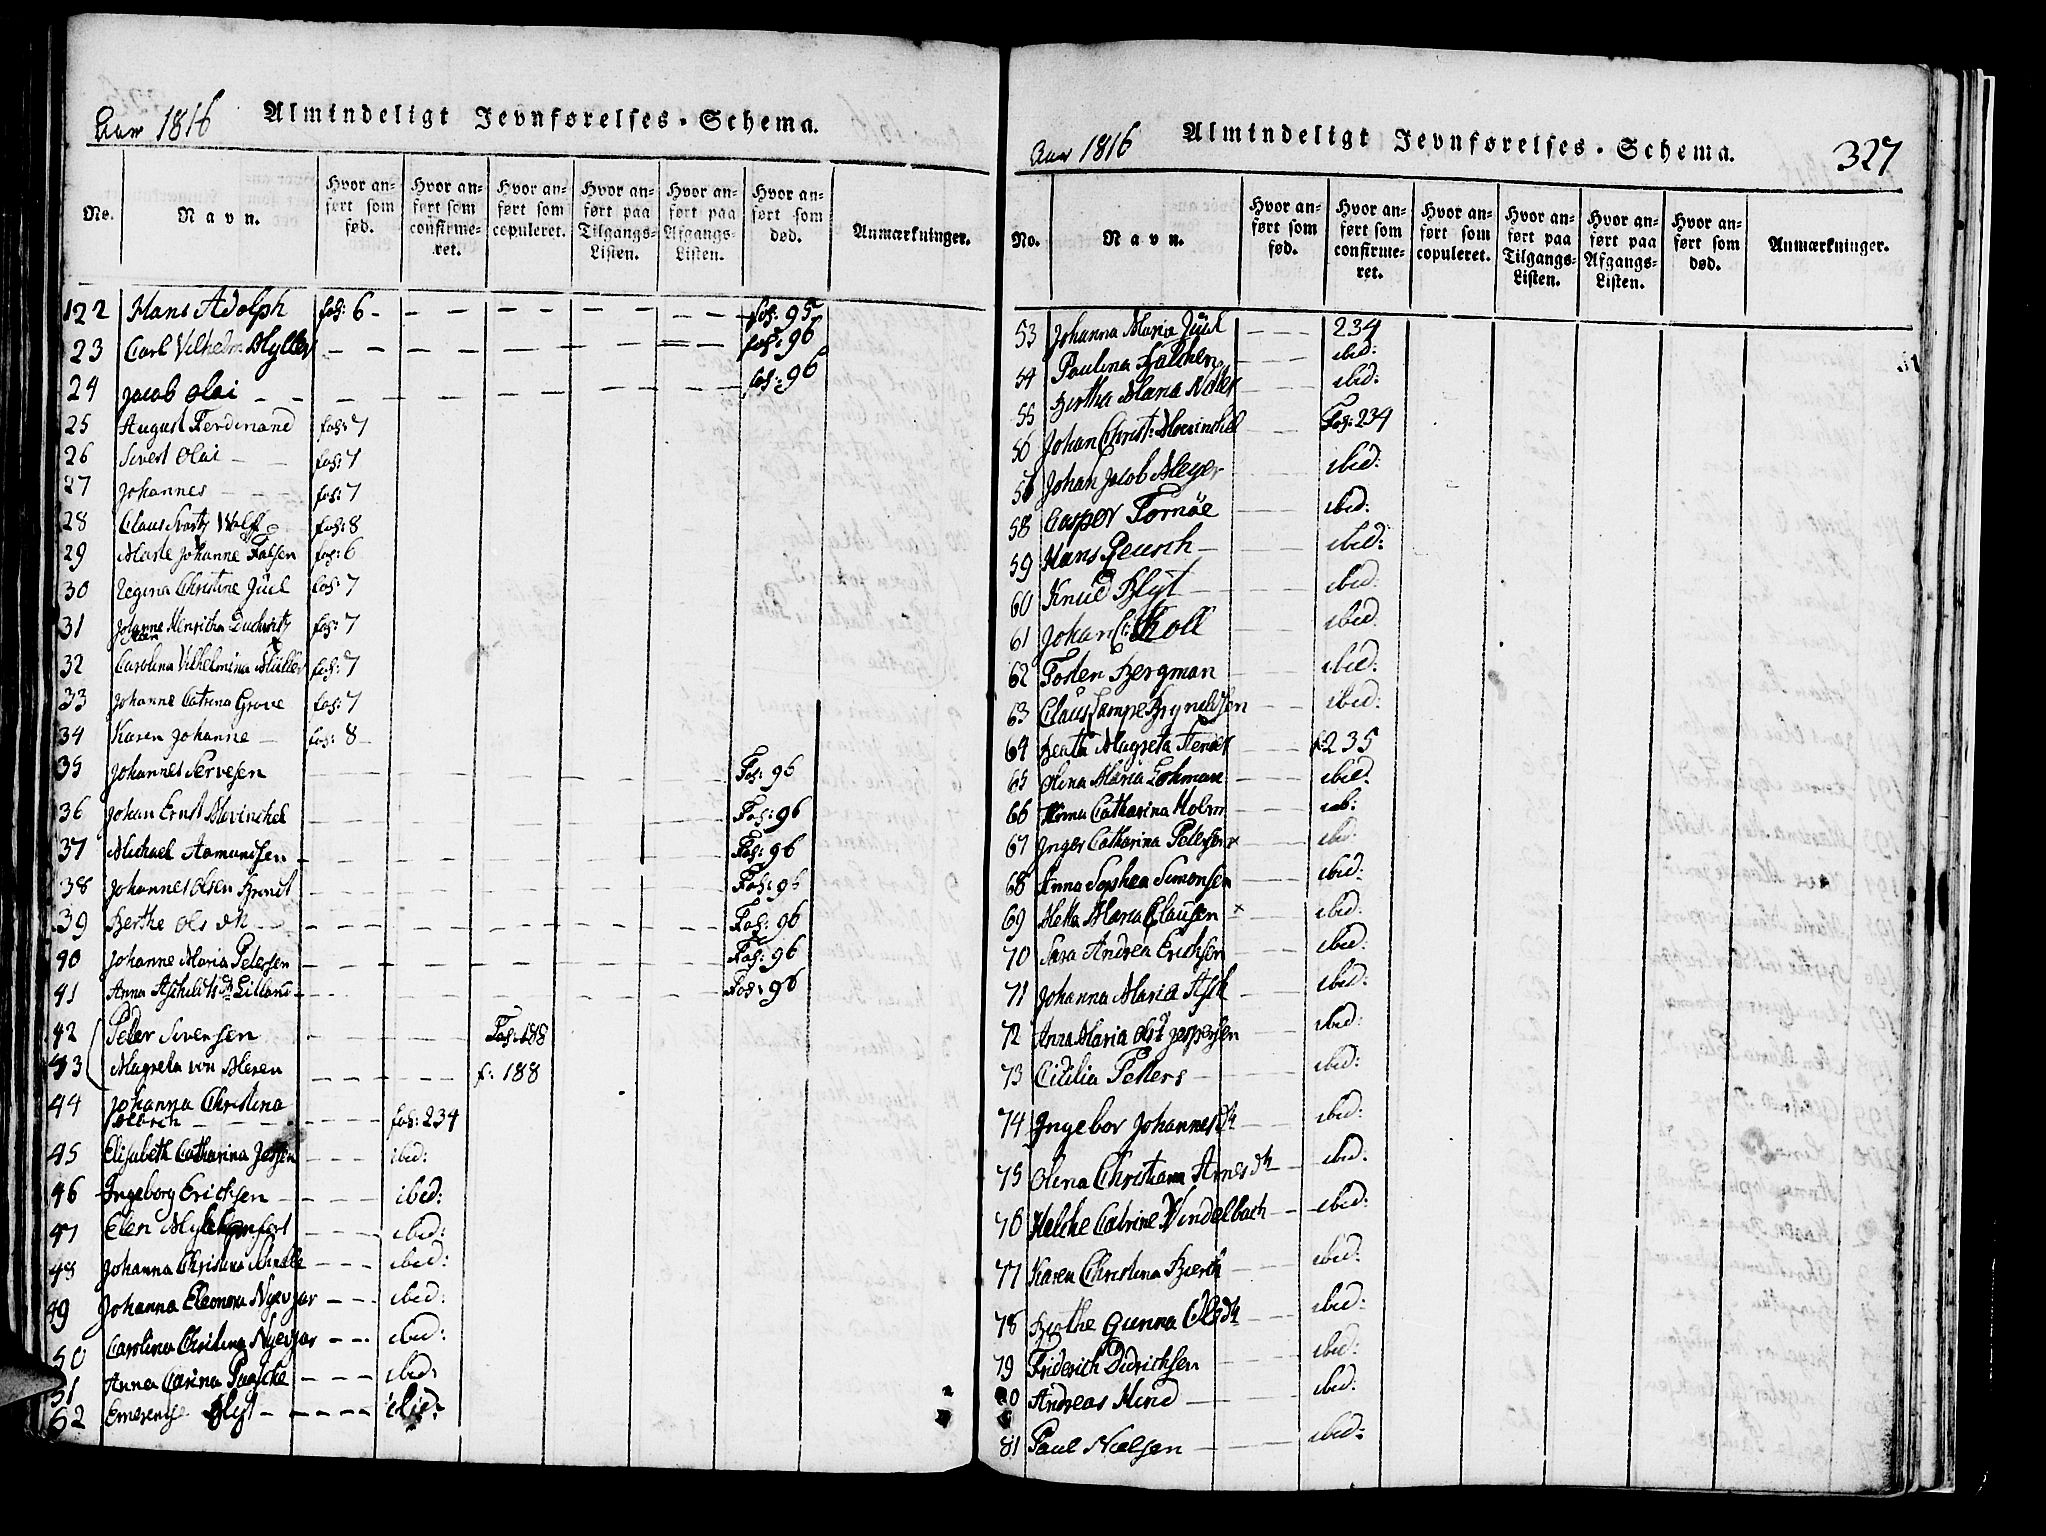 Aar 1816 Almindeligt Jevnførelses-Schema.
No. Navn. Hvor anført som fød. Hvor anført som confirmeret. Hvor anført som copuleret. Hvor anført paa Tilgangs-Listen. Hvor anført paa Afgangs-Listen. Hvor anført som død. Anmærkninger.
122 Hans Adolph fol: 6 - - - - - - - fol: 95
23 Carl Vilhelm Myller - - - - - fol: 96
24 Jacob Olai - - - - - - fol: 96
25 August Ferdinand fol: 7
26 Sivert Olai - - fol: 7
27 Johannes - - fol: 7
28 Claus Svartz Wolf fol: 8
29 Marte Johanne Falsen fol: 6
30 Regina Christine Juel fol: 7
31 Johanne Henritha fol: 7
32 Carolina Vilhelmina Müller fol: 7
33 Johanne Catrina Grove fol: 7
34 Karen Johanne - fol: 8
35 Johannes Torvesen - - - - - Fol: 96
36 Johan Ernst Movinchel - - - - - Fol: 96
37 Michael Aamundsen - - - - - Fol: 96
38 Johannes Olsen Brandt - - - - - Fol: 96
39 Berthe Ols dtr - - - - - Fol: 96
40 Johanne Maria Petersen - - - - - Fol: 96
41 Anna - - - - - Fol: 96
42 Peder Siversen - - - - Fol: 188
43 Magreta von Meren - - - - f: 188
44 Johanna Christina
- - - - - fol: 234
45 Elisabeth Catharina Jessen - - - ibid:
46 Ingeborg Erichsen - - - ibid:
47 Elen - - ibid:
48 Johanna Christina - - ibid:
49 Johanna Eleonora - - - ibid:
50 Carolina Christina - - - ibid:
51 Anna Carina Paasche - - - ibid:
52 Blyt - - - - - ibid:
Aar 1816 Almindeligt Jevnførelses-Schema. 327
No. Navn. Hvor anført som fød. Hvor anført som confirmeret. Hvor anført som copuleret. Hvor anført paa Tilgangs-Listen. Hvor anført paa Afgangs-Listen. Hvor anført som død. Anmærkninger.
53 Johanna Maria Juel - - - 234
54 Paulina - - - ibid:
55 Bertha Maria - - - ibid:
56 Johan Christ: Movinchel - - - Fol: 234
56 Johan Jacob Meyer - - - ibid:
58 Casper Tornöe - - - ibid:
59 Hans Reusch - - - - ibid:
60 Knud Blyt - - - - ibid:
61 Johan Koll - - - ibid:
62 Tosten Bergman - - - ibid:
63 Claus Lampe Brynildsen - - ibid:
64 Beata Magreta - - - f 235
65 Olena Maria Lohman - - - ibid:
66 Catharina Holm - - - ib:
67 Inger Catharina Petersen x - - ibd:
68 Anna Sophea Simonsen - - - ibid:
69 Metta Maria Clausen - x - - ibid:
70 Sara Andrea Erichsen - - - ibid:
71 Johanna Maria Ask - - - ibid:
72 Anna Maria Jespersen - - ibid:
73 Cicilia Petters - - - - ibid:
74 Ingebor Johannes dtr - - - ibid:
75 Olena Christiana Arnes dtr - - ibid:
76 Helche Catrine Vindelbach - - ibid:
77 Karen Christina - - - ibid:
78 Berthe Gunna Ols dtr - - - ibid:
79 Friderich Didrichsen - - - ibid:
80 Andreas Hind - - - ibid:
81 Paul Nielsen - - - - ibid: